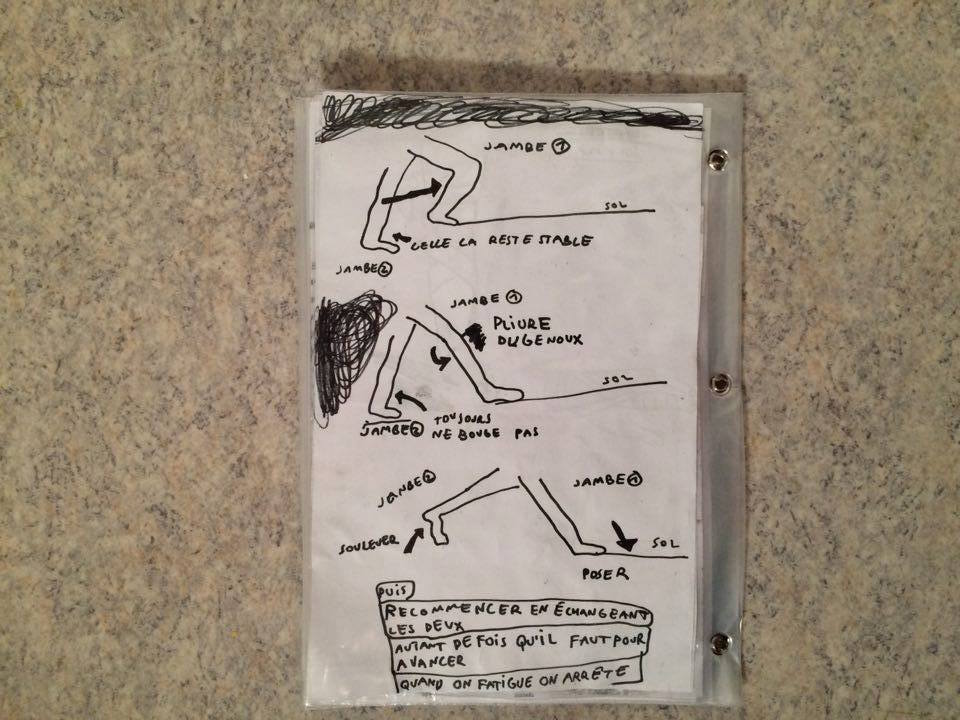 JAMBE ①
SOL
CELLE CA RESTE STABLE
JAMBE ②
JAMBE ①
PLIURE
DU GENOUX
SOL
TOUJOURS
JAMBE ② NE BOUGE PAS
JAMBE ②
JAMBE ①
SOULEVER
SOL
POSER
PUIS
RECOMMENCER EN ÉCHANGEANT
LES DEUX
AUTANT DE FOIS QU'IL FAUT POUR
AVANCER
QUAND ON FATIGUE ON ARRÊTE